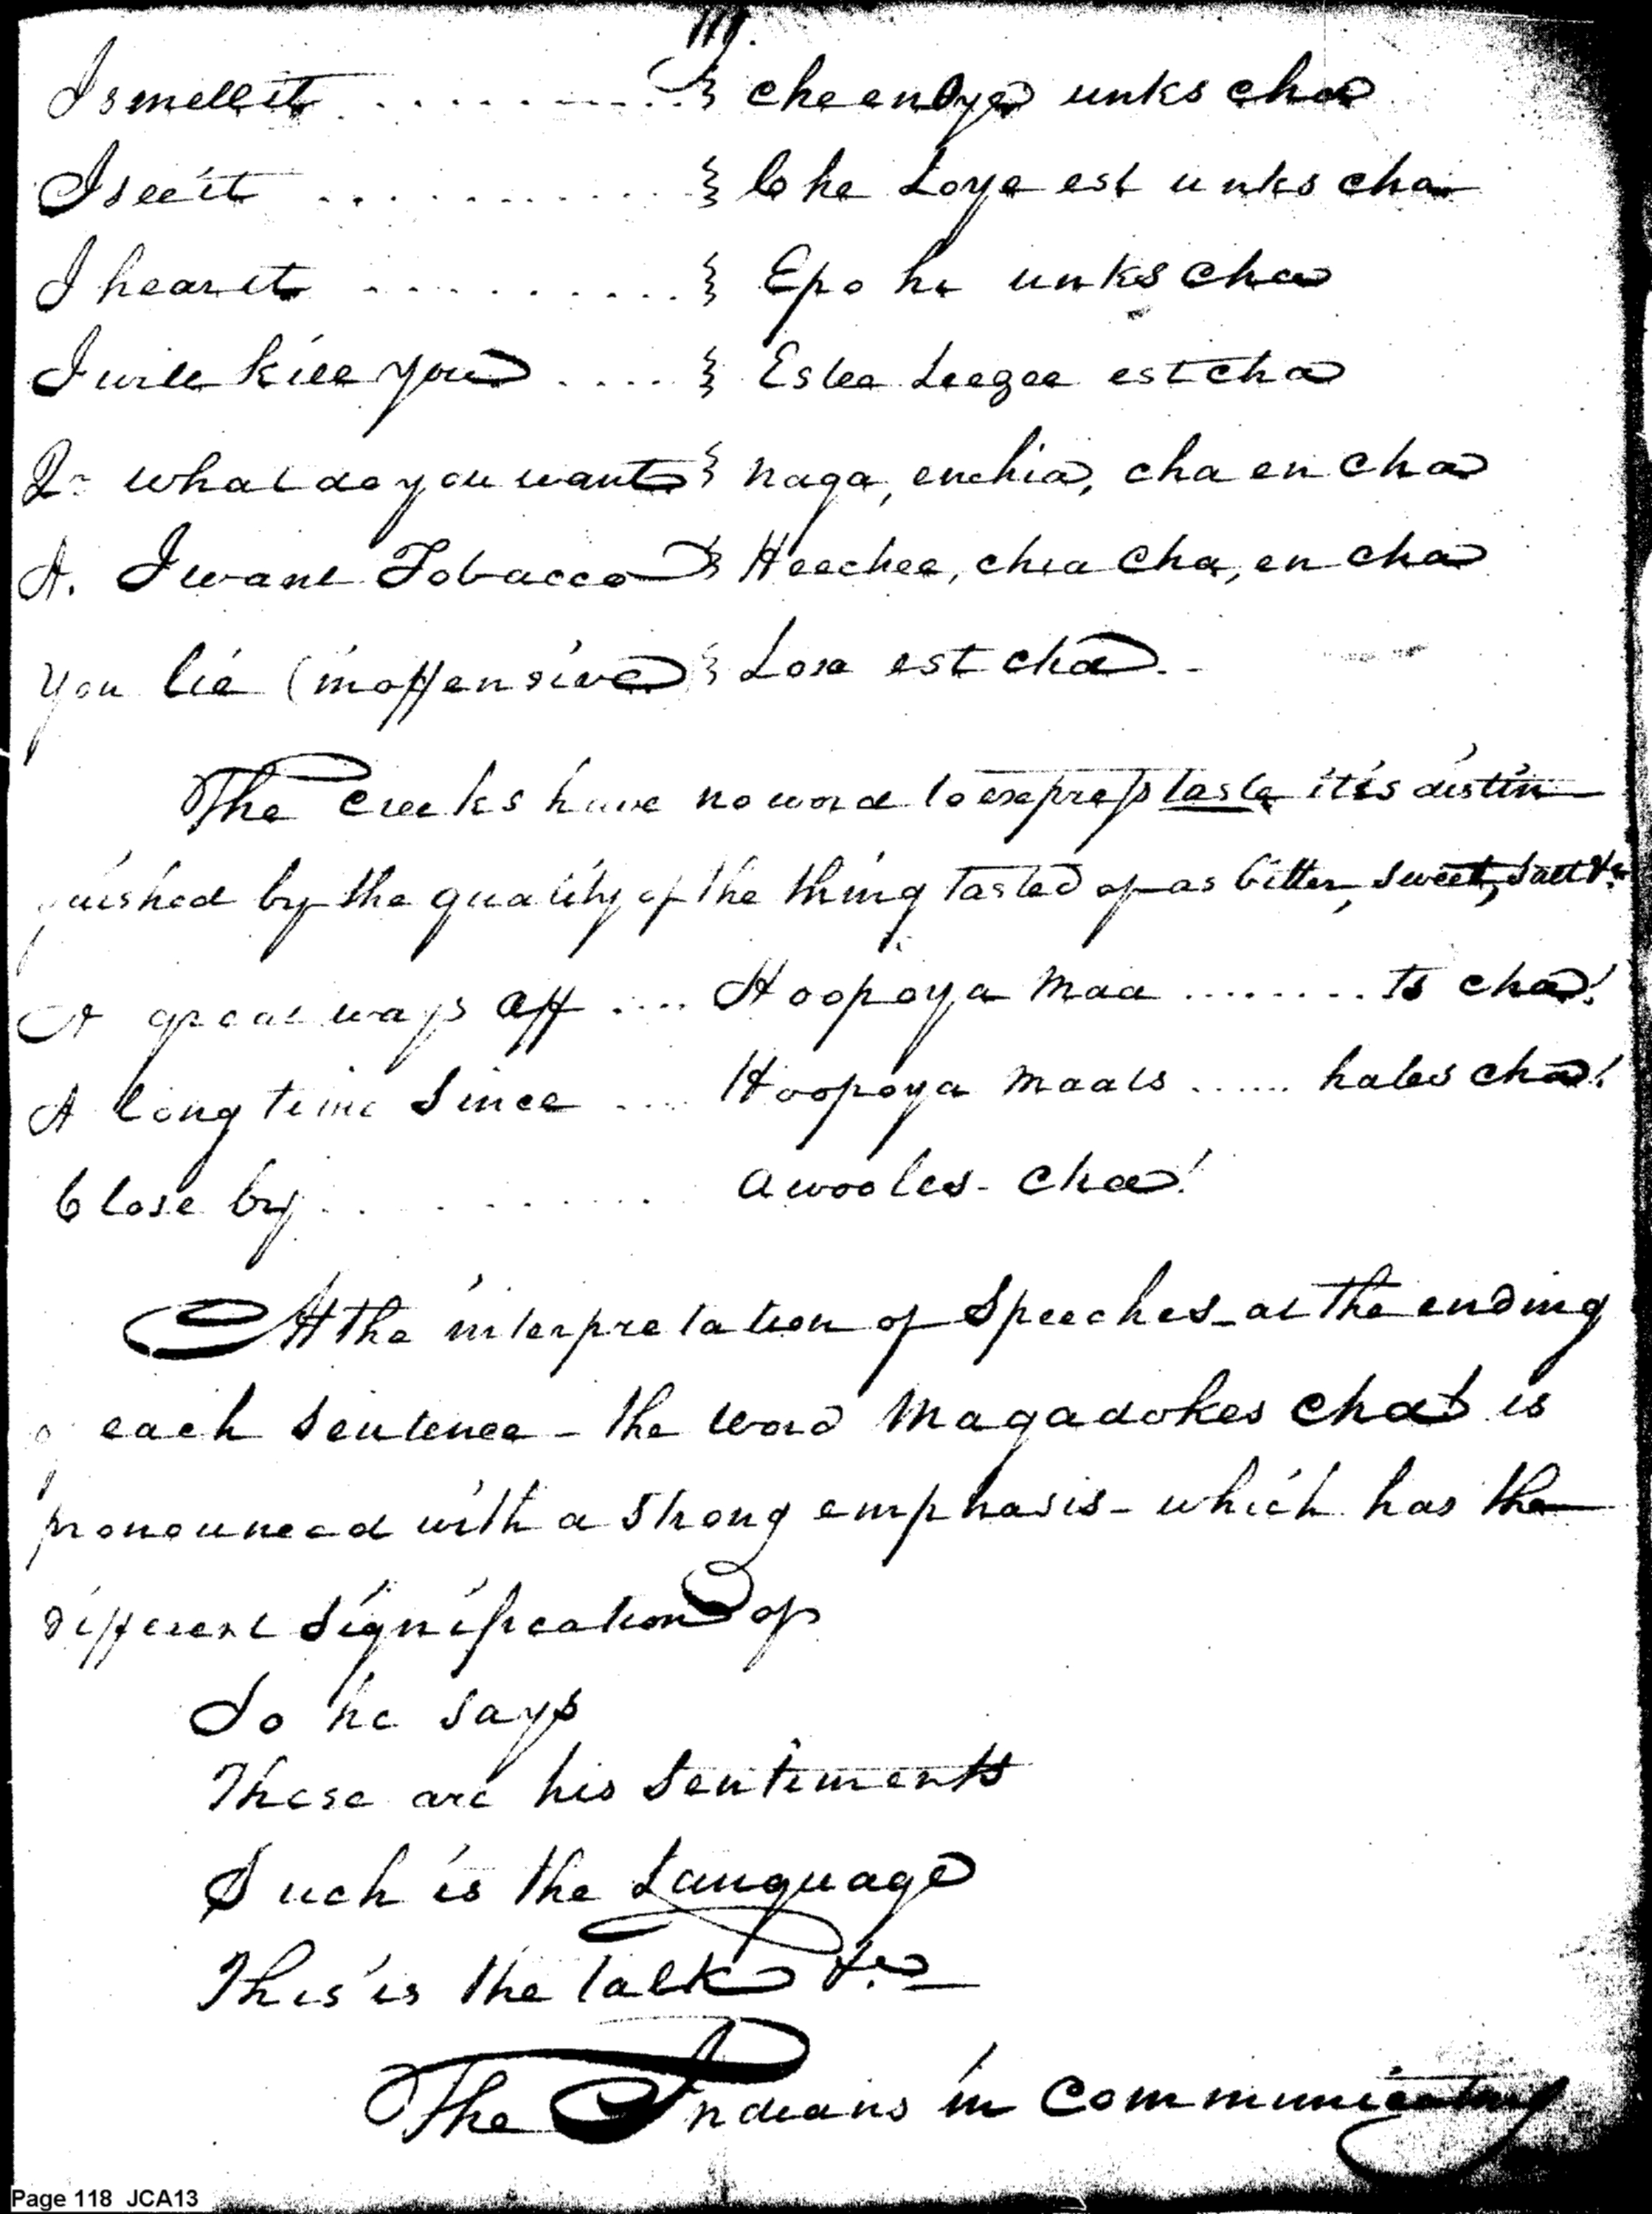 I smell it .......... } cheenoya unks cha
I see it ........... } Che Loye est unks cha
I hear it .......... } Epo he unks cha
I will kill you .... } Estee Leegee est cha
Q- what do you want } naga, enchia, cha en cha
A. I want Tobacco } Heechee, chea Cha, en cha
you lie (inoffensive) } Loxa est cha.-
The creeks have no word to express taste it is distin
guished by the quality of the thing tasted of - as bitter, sweet, salt &c
A great ways off .... Hoopoya maa ........ ts cha!
A long time Since .... Hoopoya maats ...... hates cha!
Close by .......... awooles - cha!
At the interpretation of Speeches - at the ending
of each Sentence - the word Magadokes chat is
pronounced with a strong emphasis - which has the
different Signification of
So he says
These are his Sentiments
Such is the Language
This is the talk &c
The Indians in Communicating
Page 118 JCA13